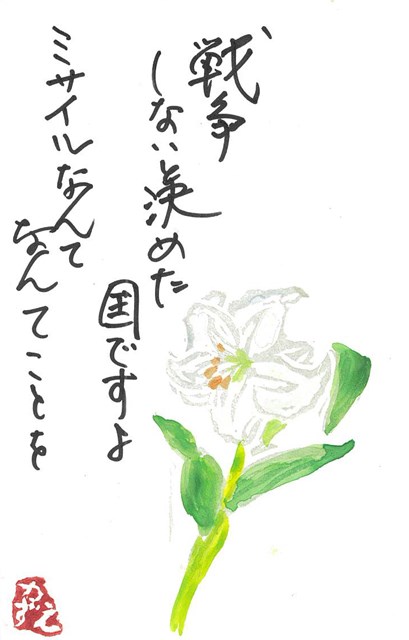 戦争
しないと決めた
国ですよ
ミサイルなんて
なんてことを
かずえ